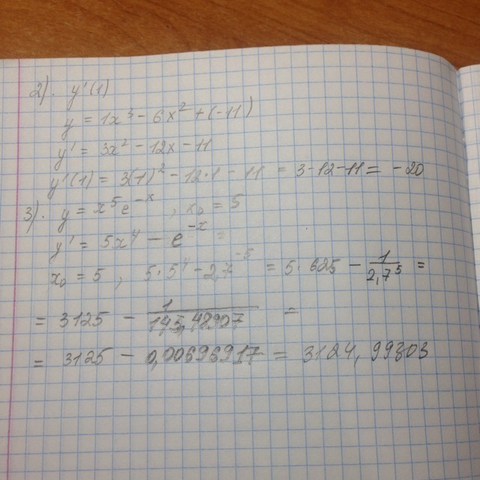 2). y'(1)
y = 1x³ - 6x² + (-11)
y' = 3x² - 12x - 11
y'(1) = 3(1)² - 12·1 - 11 = 3-12-11 = -20
3). y = x⁵e⁻ˣ , x₀ = 5
y' = 5x⁴ - e⁻ˣ =
x₀ = 5 , 5·5⁴ - 2,7⁻⁵ = 5·625 - 1/2,7⁵ =
= 3125 - 1/143,48907 =
= 3125 - 0,00696917 = 3124,99303